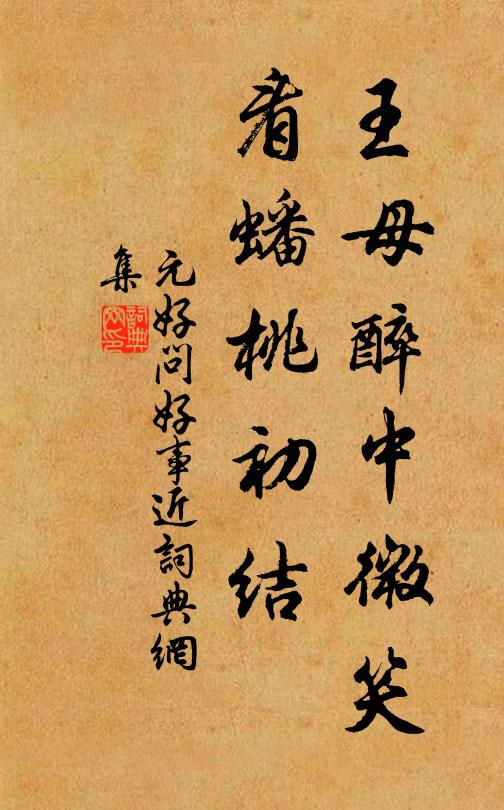 王母醉中微笑
看蟠桃初结
元好问好事近詞典網
集
詞典
网印